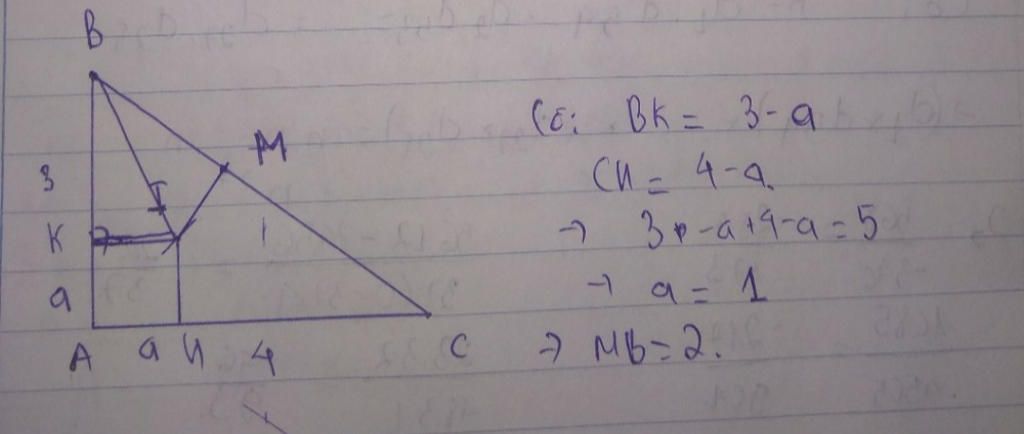 B
M
3
I
K
a
A a H 4 C
Có: BK = 3-a
CH = 4-a.
→ 3 -a+4-a=5
→ a = 1
→ MB=2.